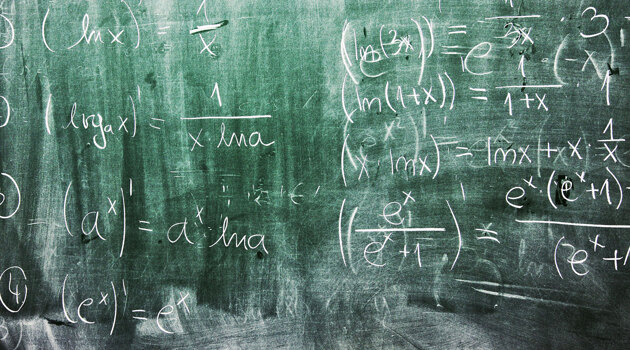 (ln x)' = 1/x
(log_a x)' = 1/(x ln a)
(a^x)' = a^x ln a
④ (e^x)' = e^x
(ln(3x))' = 1/3x · 3
(ln(1+x))' = 1/(1+x) · 1
(x · ln x)' = ln x + x · 1/x
(e^x/(e^x+1))' = e^x · (e^x+1) / (e^x+1